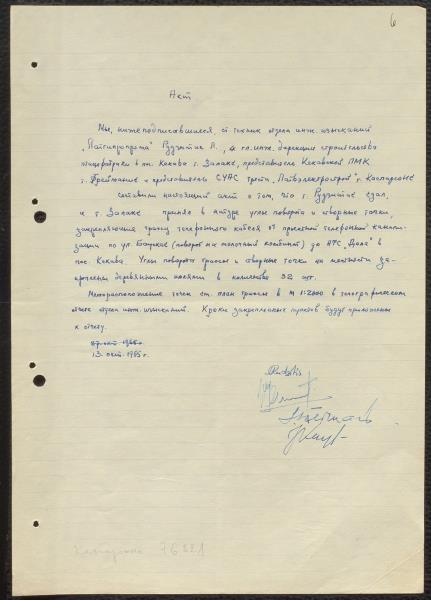 6
Акт
Мы, нижеподписавшиеся, ст. техник отдела инж. изысканий
„Латгипропрома" Рудзитис А., и гл. инж. дирекции строительства
птицефабрики в пос. Кекава т. Залакс, представитель Кекавской ПМК
т. Фрейманис и представитель СУАС треста „Латвэлектрострой" т.
составили настоящий акт о том, что т. Рудзитис сдал,
и т. Залакс принял в натуре углы поворота и створные точки,
закрепляющие трассу телефонного кабеля от проектной телефонной канали-
зации по ул. Баускас (поворот на молочный комбинат) до АТС „Дома" в
пос. Кекава. Углы поворота трассы и створные точки на местности за-
креплены деревянными кольями в количестве 32 шт.
Месторасположение точек см. план трассы в М 1:2000 в топографическом
отчете отдела инж. изысканий. Кроки закрепленных пунктов будут приложены
к отчету.
13. окт. 1965 г.
Rudzītis
76221